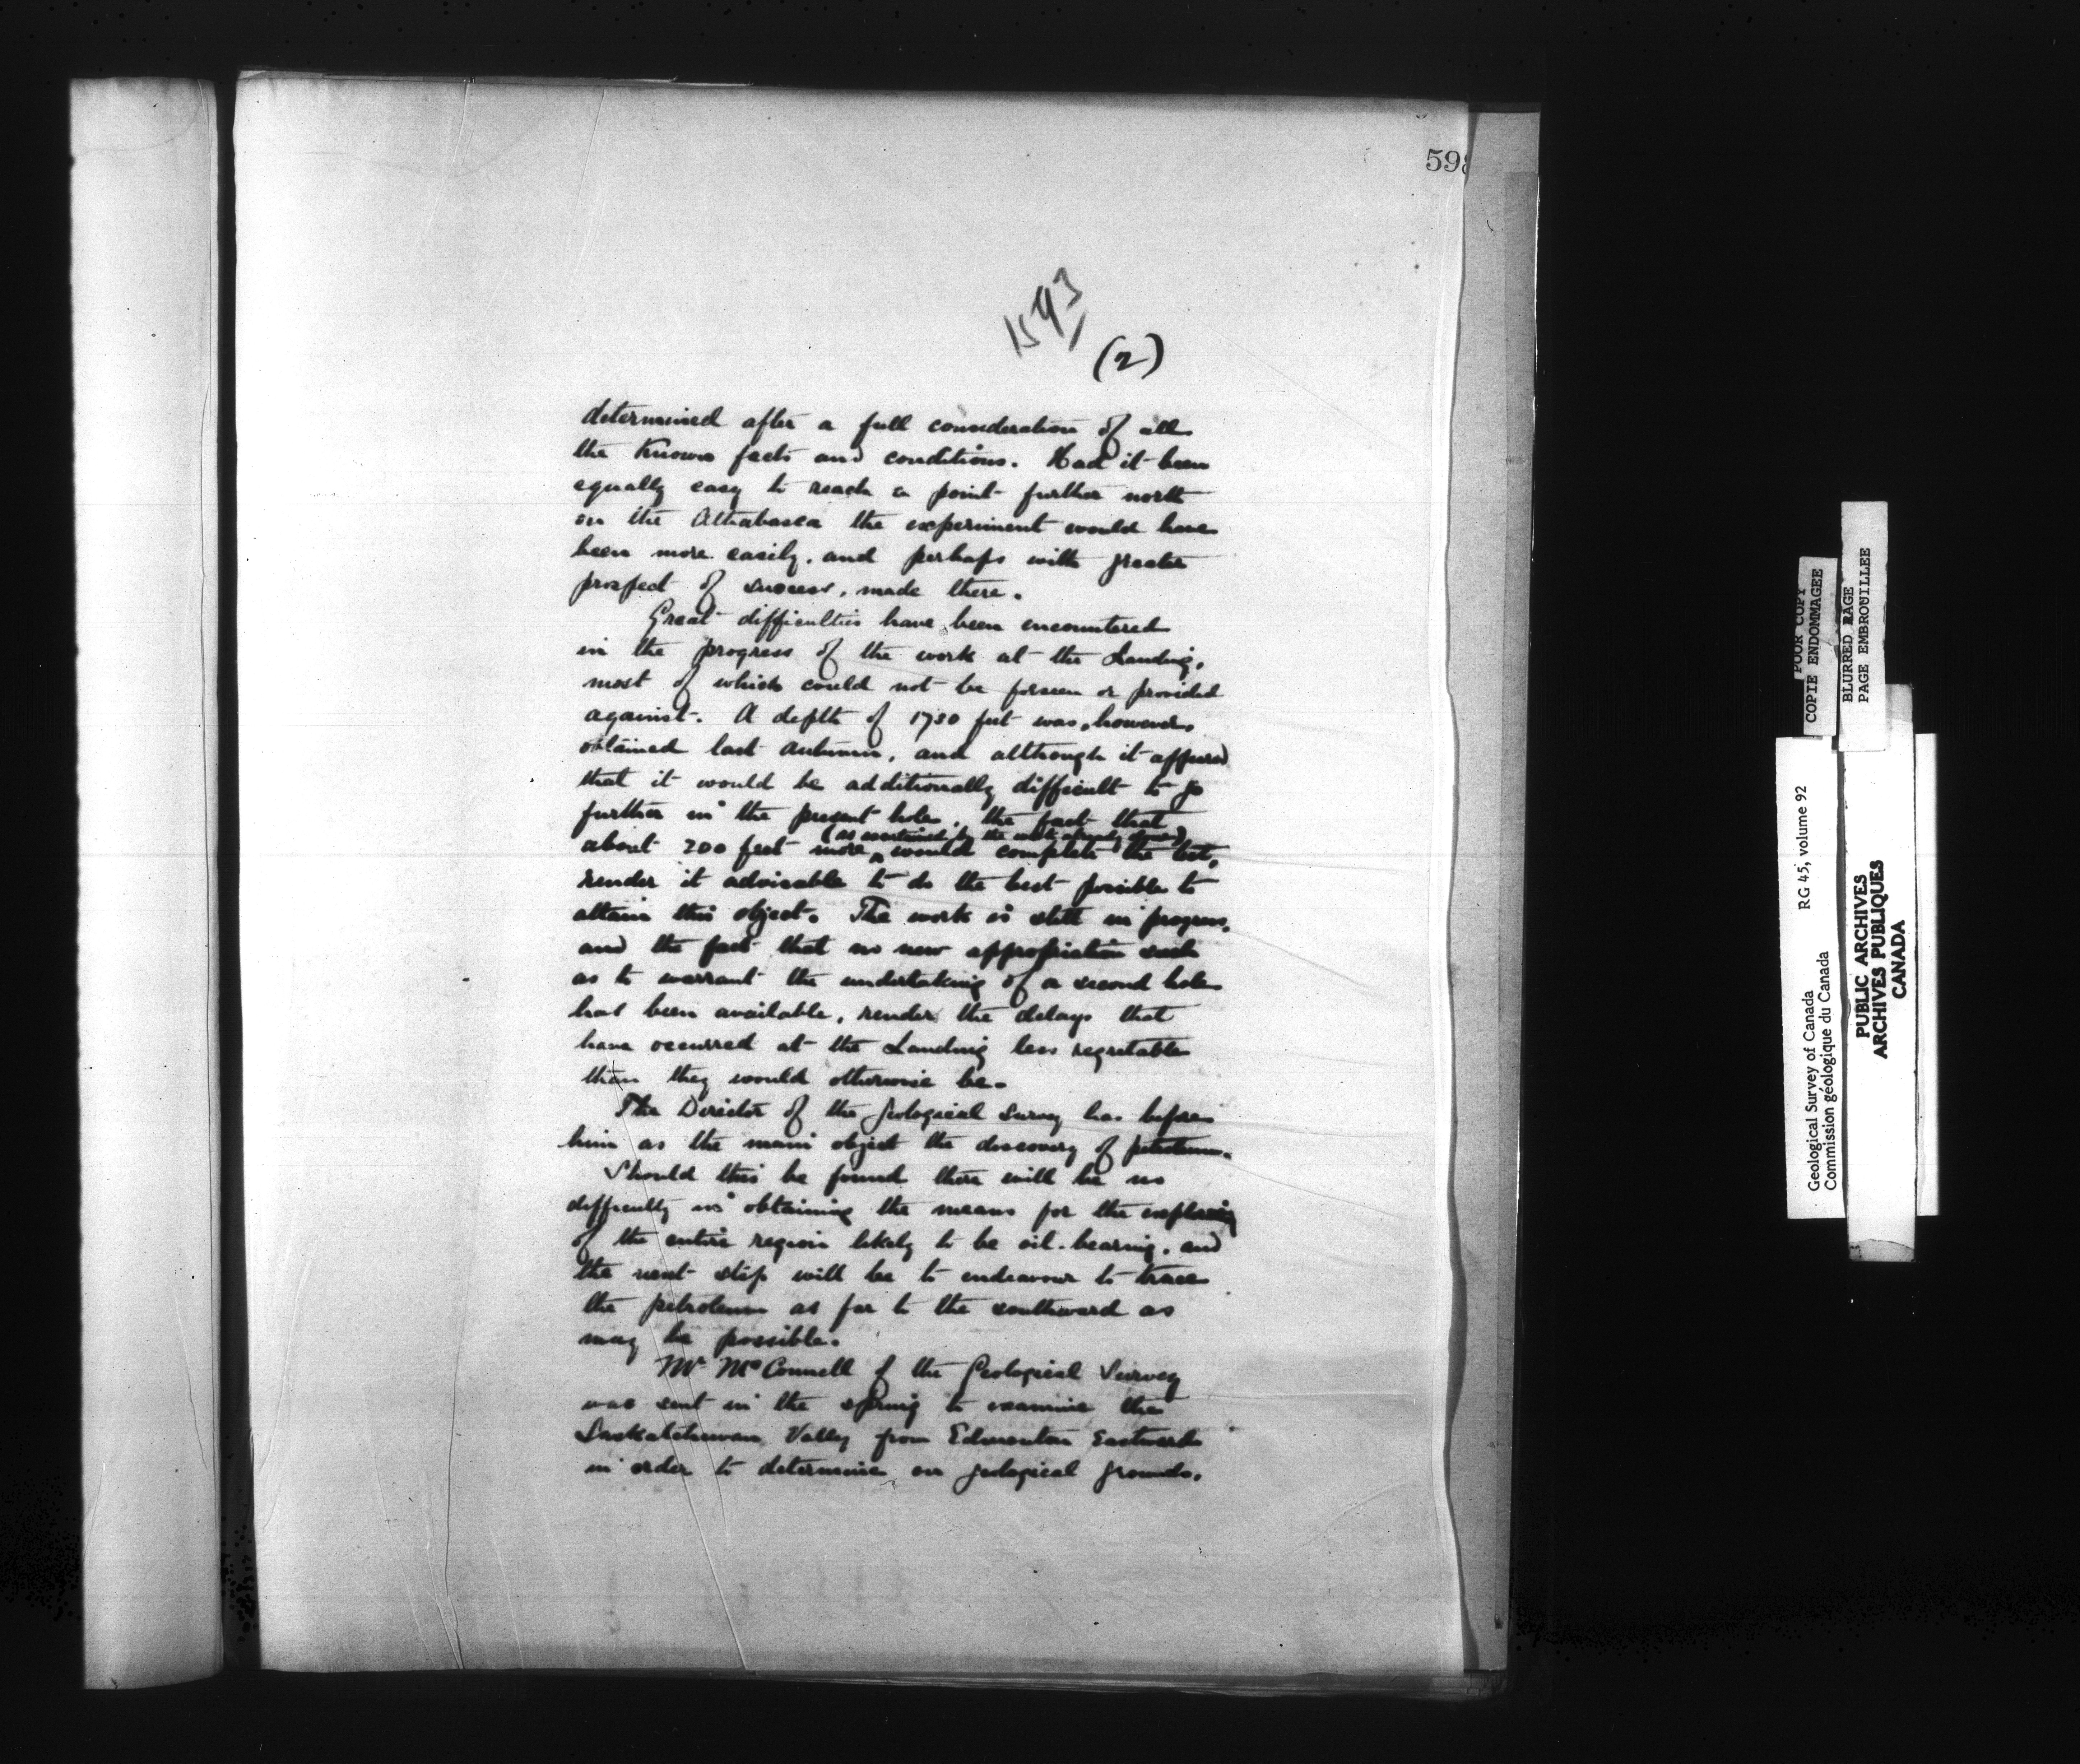 598
1593
(2)
determined after a full consideration of all
the Known facts and conditions. Had it been
equally easy to reach a point further north
on the Athabasca the experiment would have
been more easily, and perhaps with greater
prospect of success, made there.
Great difficulties have been encountered
in the progress of the work at the Landing,
most of which could not be forseen or provided
against. A depth of 1730 feet was, however,
obtained last autumn, and although it appeared
that it would be additionally difficult to go
further in the present hole, the fact that
(as ascertained by the work already done)
about 200 feet more would complete the test,
render it advisable to do the best possible to
attain this object. The work is still in progress,
and the fact that no new appropriation such
as to warrant the undertaking of a second hole
has been available, render the delays that
have occurred at the Landing less regretable
than they would otherwise be.
The Director of the Geological Survey has before
him as the main object the discovery of petroleum.
Should this be found there will be no
difficulty in obtaining the means for the exploring
of the entire region likely to be oil-bearing, and
the next step will be to endeavour to trace
the petroleum as far to the southward as
may be possible.
Mr McConnell of the Geological Survey
was sent in the spring to examine the
Saskatchewan Valley from Edmonton Eastward
in order to determine on geological grounds,
POOR COPY
COPIE ENDOMMAGEE
BLURRED PAGE
PAGE EMBROUILLEE
Geological Survey of Canada RG 45, volume 92
Commission géologique du Canada
PUBLIC ARCHIVES
ARCHIVES PUBLIQUES
CANADA